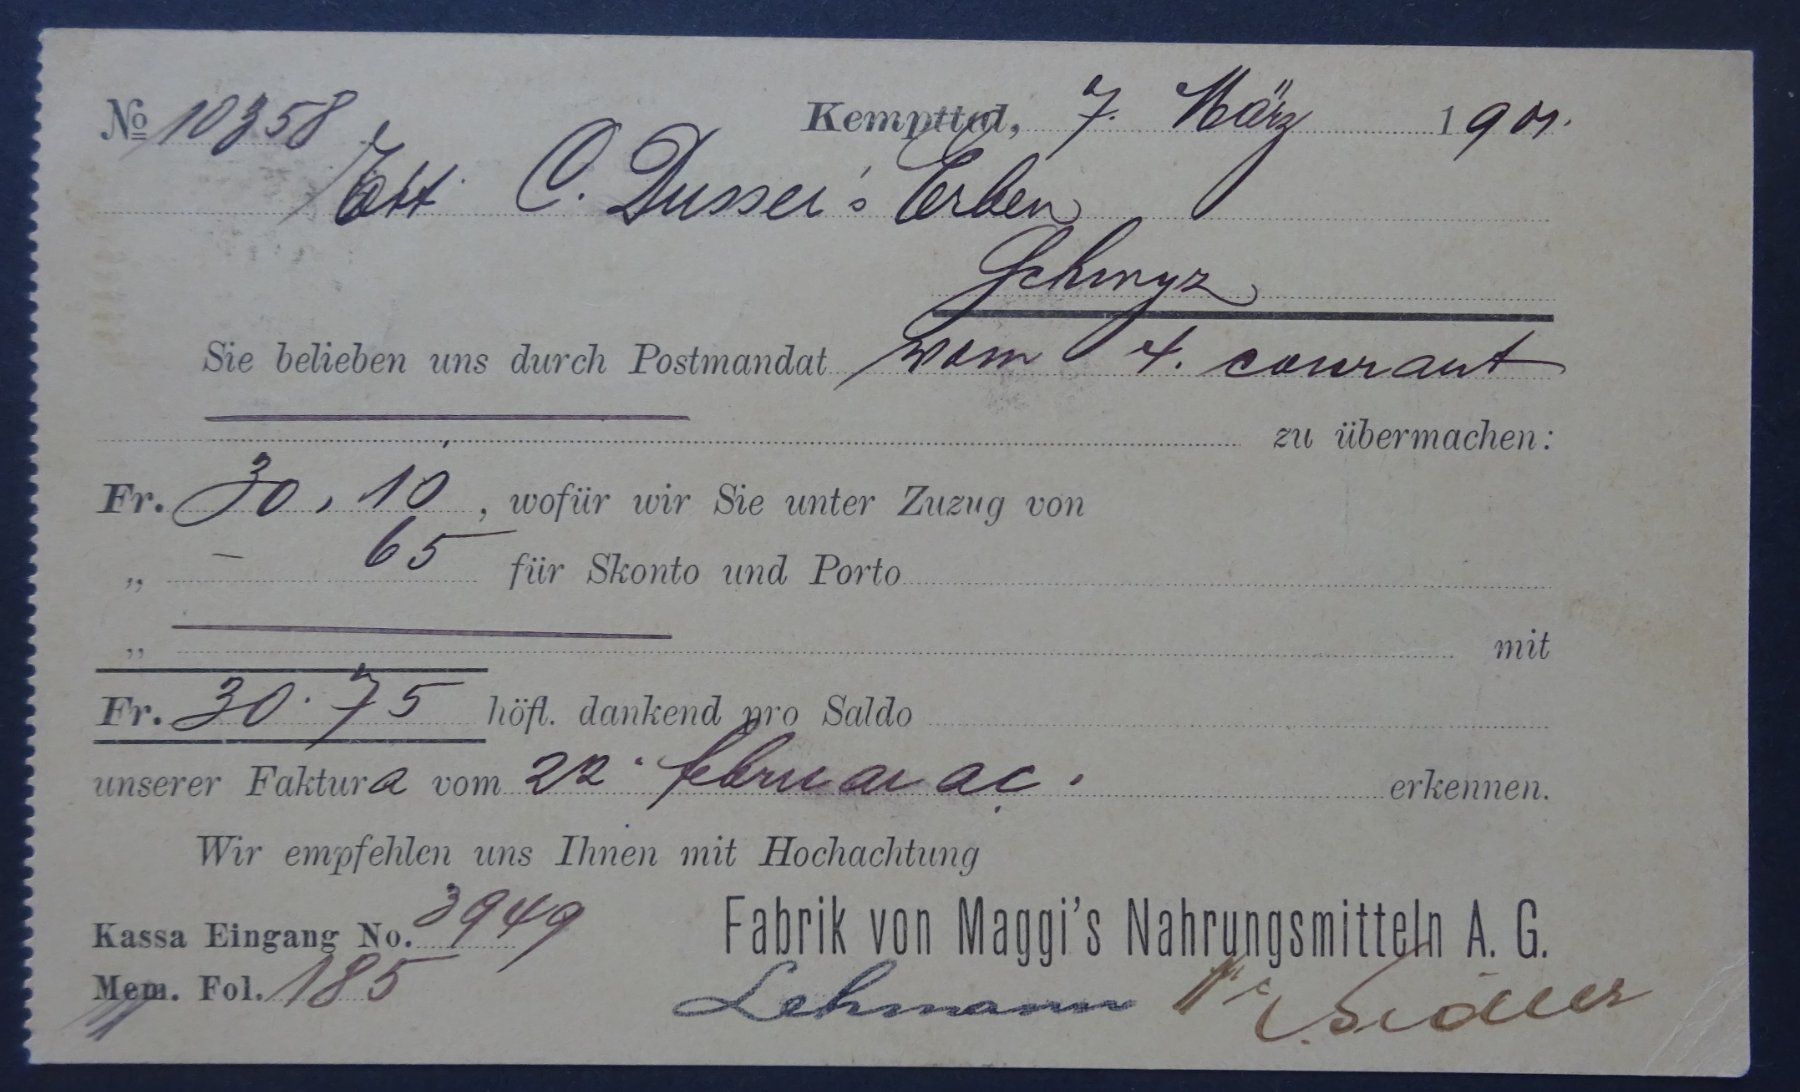 № 10358 Kempttal, 7. März 1901.
Titt. C. Dusser's Erben
Schwyz
Sie belieben uns durch Postmandat vom 4. courant
zu übermachen:
Fr. 30,10, wofür wir Sie unter Zuzug von
„ — 65 für Skonto und Porto
„ mit
Fr. 30.75 höfl. dankend pro Saldo
unserer Faktura vom 22. februar ac. erkennen.
Wir empfehlen uns Ihnen mit Hochachtung
Kassa Eingang No. 3949 Fabrik von Maggi's Nahrungsmitteln A. G.
Mem. Fol. 185 Lehmann